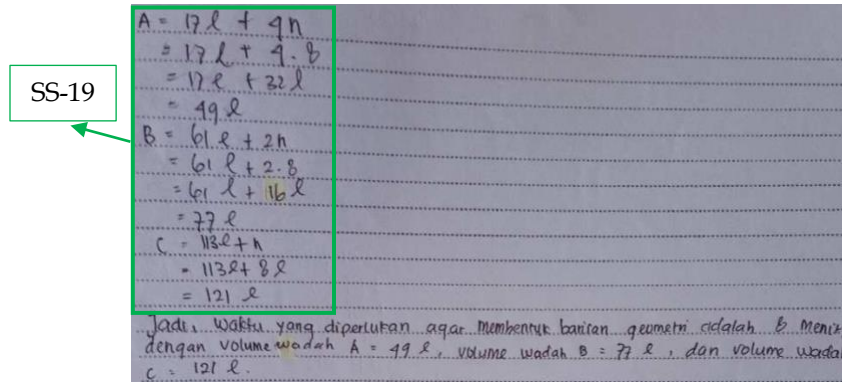 A = 17 l + 4n
= 17 l + 4 . 8
= 17 l + 32 l
= 49 l
SS-19
B = 61 l + 2n
= 61 l + 2 . 8
= 61 l + 16 l
= 77 l
C = 113 l + n
= 113 l + 8 l
= 121 l
Jadi, waktu yang diperlukan agar membentuk barisan geometri adalah 8 menit
dengan volume wadah A = 49 l, volume wadah B = 77 l, dan volume wadah
C = 121 l.